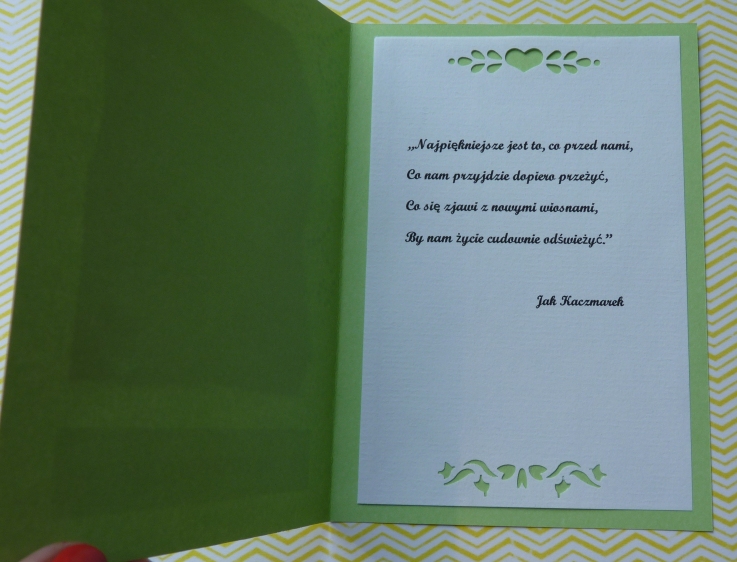 „Najpiękniejsze jest to, co przed nami,
Co nam przyjdzie dopiero przeżyć,
Co się zjawi z nowymi wiosnami,
By nam życie cudownie odświeżyć.”
Jak Kaczmarek